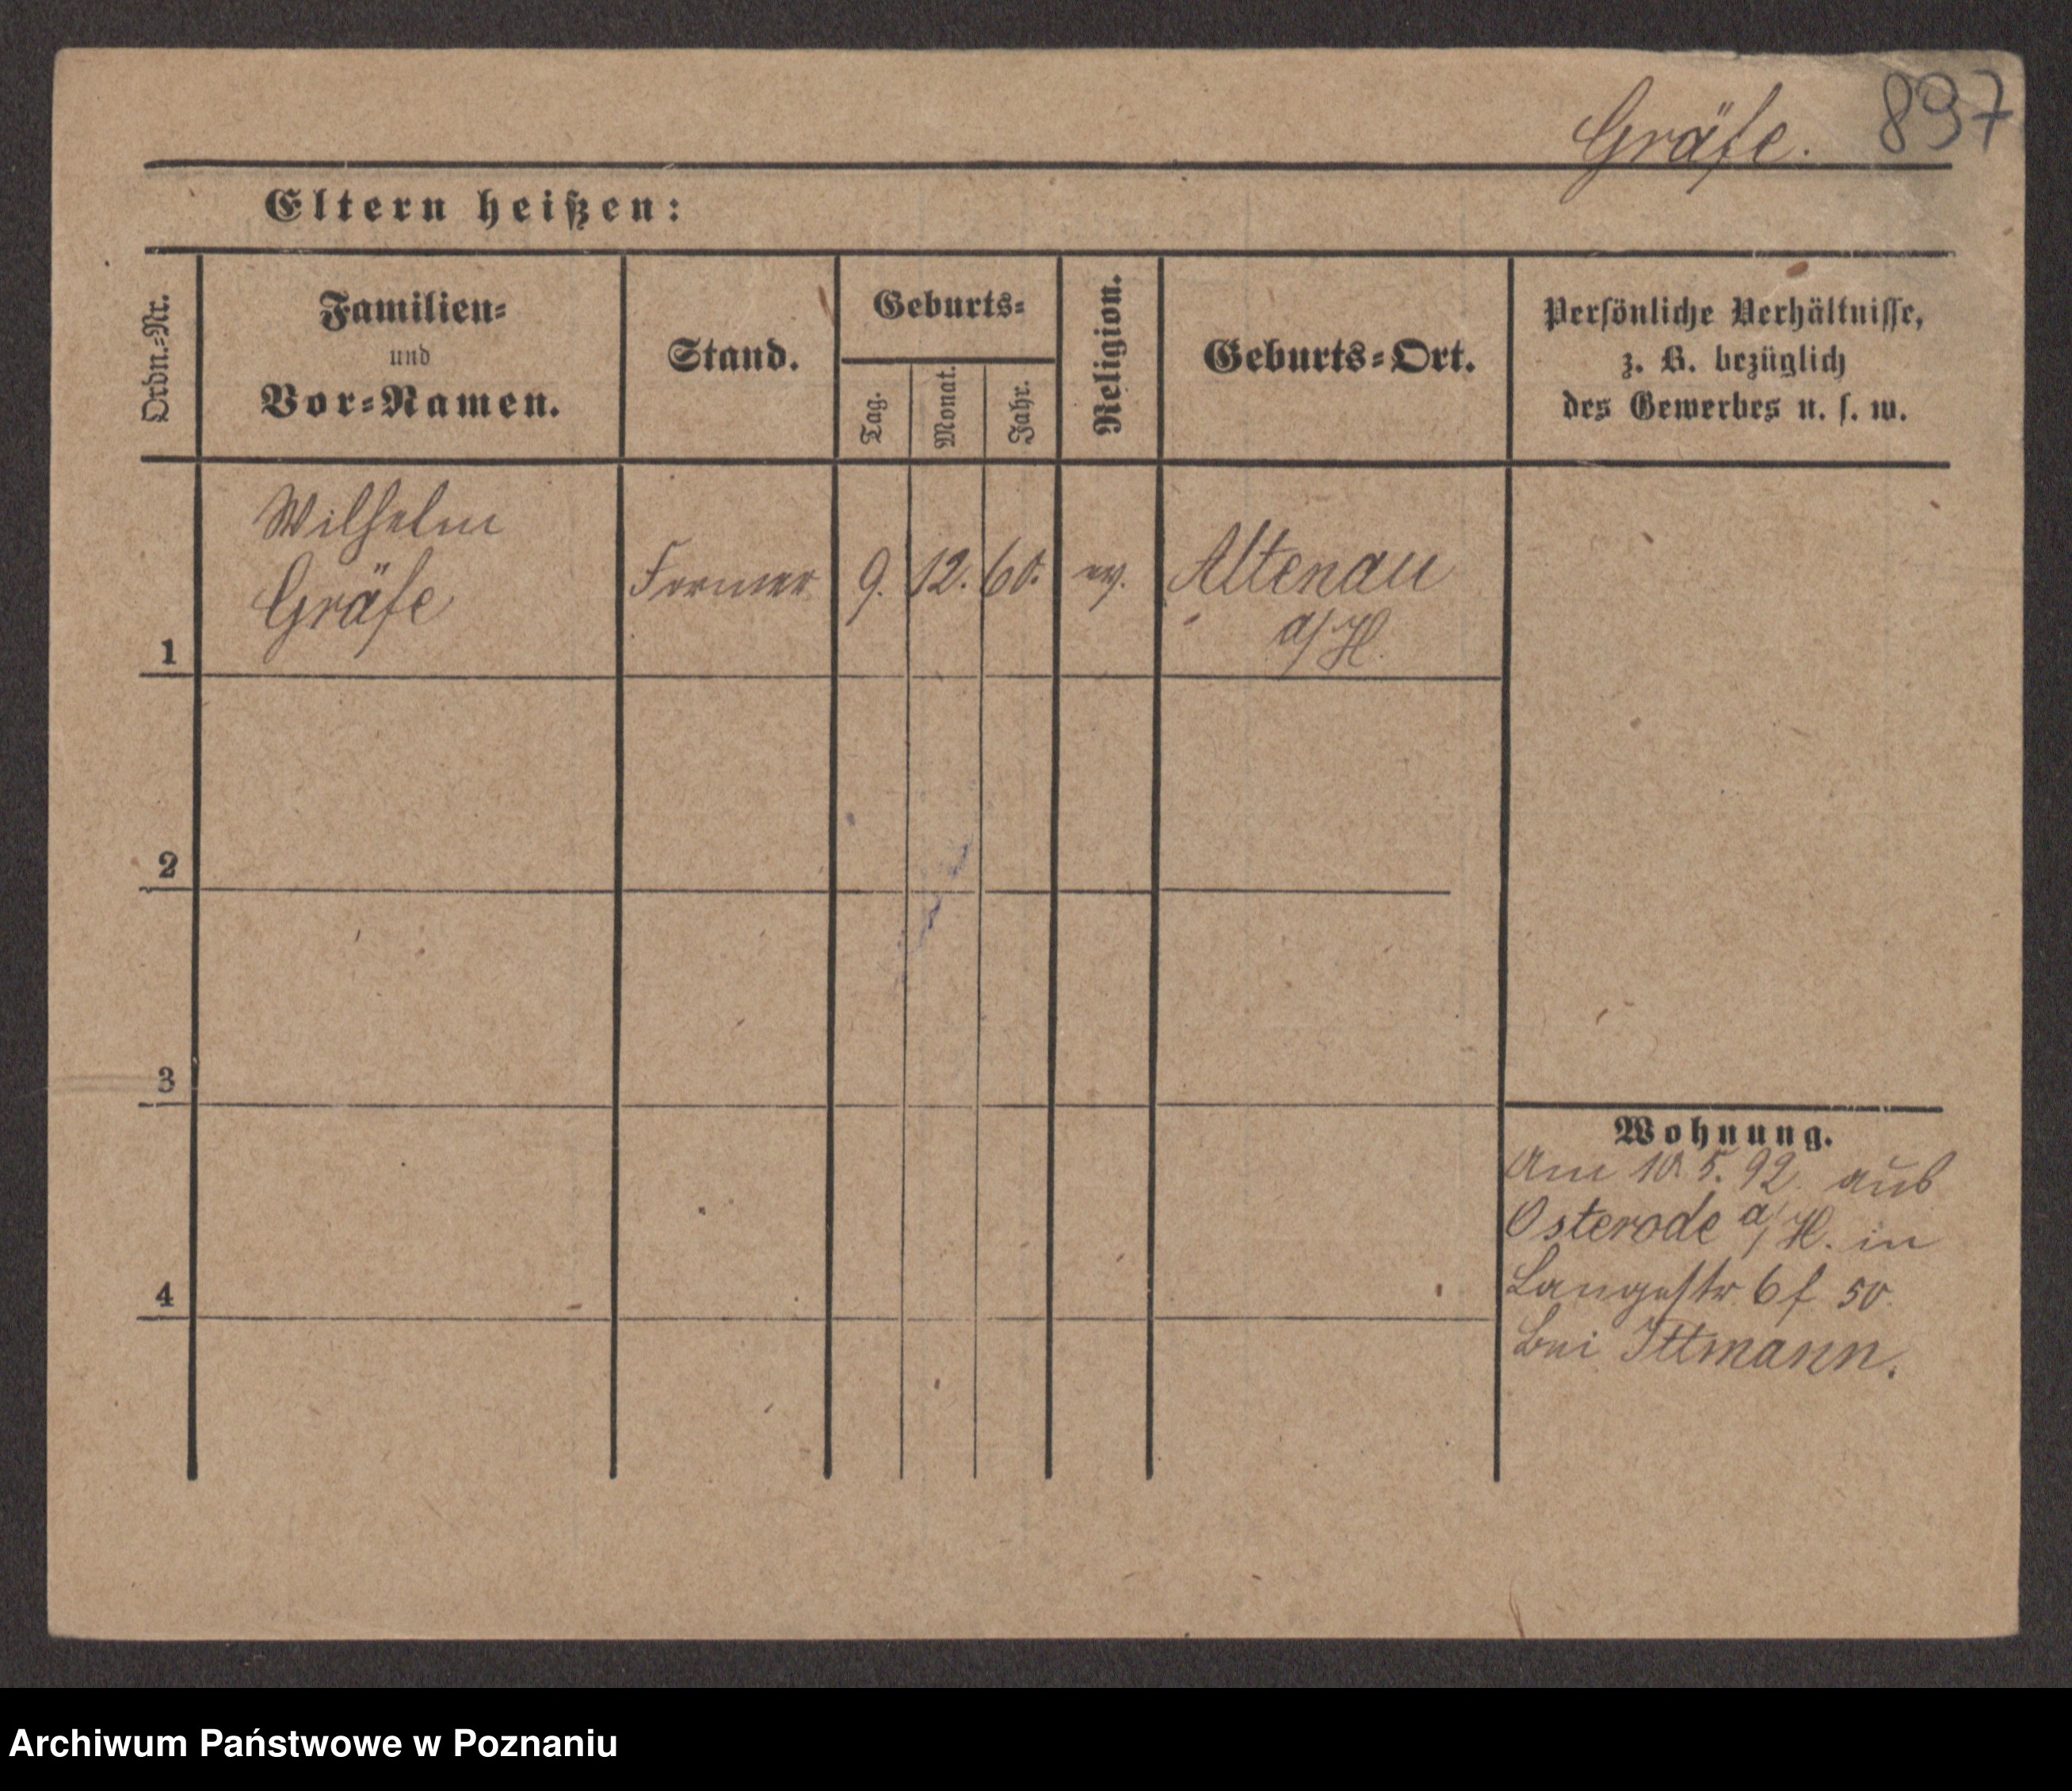 Gräfe. 897
Eltern heißen:
Ordn.=Nr.
Familien=
und
Vor=Namen.
Stand.
Geburts=
Tag.
Monat.
Jahr.
Religion.
Geburts=Ort.
Persönliche Verhältnisse,
z. B. bezüglich
des Gewerbes u. s. w.
Wilhelm
Gräfe
Former
9. 12. 60.
ev.
Altenau
a/H.
1
2
3
4
Wohnung.
Am 10. 5. 92. aus
Osterode a/H. in
Langestr 6 f 50.
bei Ittmann.
Archiwum Państwowe w Poznaniu